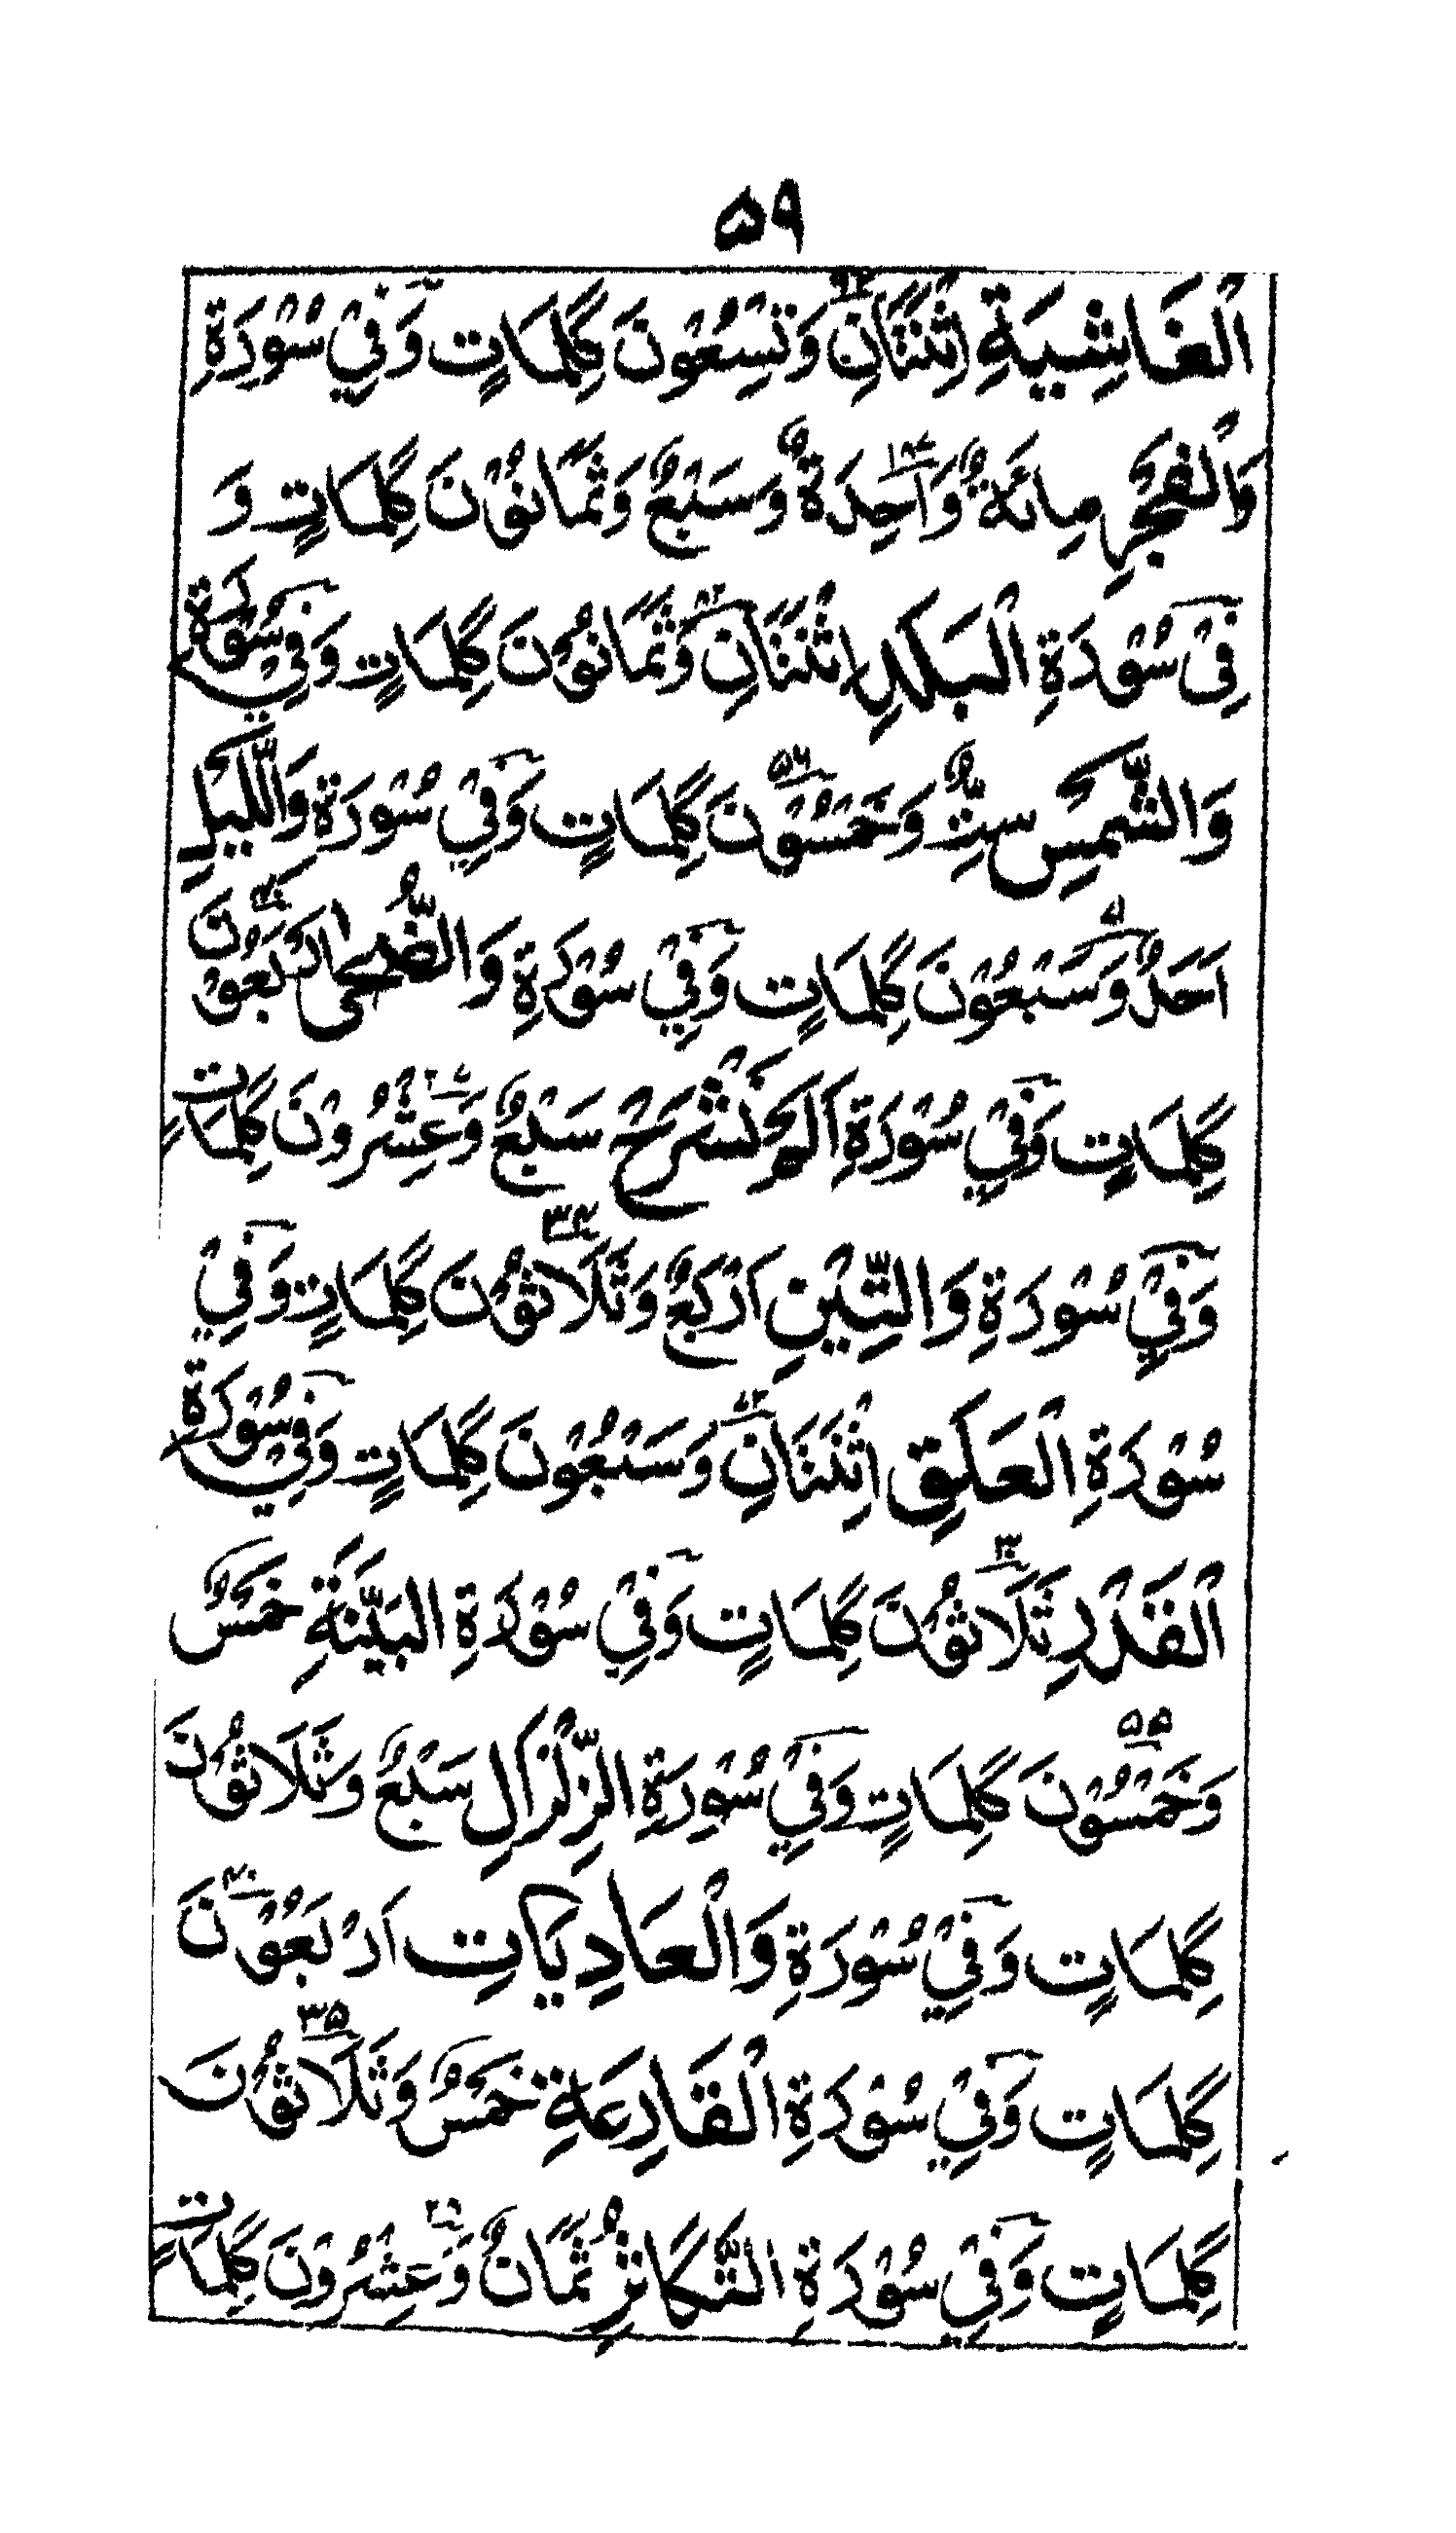 ۵۹
الْغَاشِيَةِ اِثْنَتَانِ وَتِسْعُوْنَ كَلِمَاتٍ وَفِيْ سُوْرَةِ
وَالْفَجْرِ مِائَةٌ وَّاحِدَةٌ وَسَبْعٌ وَثَمَانُوْنَ كَلِمَاتٍ وَ
فِيْ سُوْرَةِ الْبَلَدِ اِثْنَتَانِ وَثَمَانُوْنَ كَلِمَاتٍ وَفِيْ سُوْرَةِ
وَالشَّمْسِ سِتٌّ وَخَمْسُوْنَ ۵۶ كَلِمَاتٍ وَفِيْ سُوْرَةِ وَاللَّيْلِ
اَحَدٌ وَسَبْعُوْنَ كَلِمَاتٍ وَفِيْ سُوْرَةِ وَالضُّحٰى اَرْبَعُوْنَ
كَلِمَاتٍ وَفِيْ سُوْرَةِ اَلَمْ نَشْرَحْ سَبْعٌ وَعِشْرُوْنَ كَلِمَاتٍ
وَفِيْ سُوْرَةِ وَالتِّيْنِ اَرْبَعٌ وَثَلَاثُوْنَ ۳۴ كَلِمَاتٍ وَفِيْ
سُوْرَةِ الْعَلَقِ اِثْنَتَانِ وَسَبْعُوْنَ كَلِمَاتٍ وَفِيْ سُوْرَةِ
الْقَدْرِ ثَلَاثُوْنَ ۳۰ كَلِمَاتٍ وَفِيْ سُوْرَةِ الْبَيِّنَةِ خَمْسٌ
وَخَمْسُوْنَ ۵۵ كَلِمَاتٍ وَفِيْ سُوْرَةِ الزِّلْزَالِ سَبْعٌ وَثَلَاثُوْنَ
كَلِمَاتٍ وَفِيْ سُوْرَةِ وَالْعَادِيَاتِ اَرْبَعُوْنَ ۴۰
كَلِمَاتٍ وَفِيْ سُوْرَةِ الْقَارِعَةِ خَمْسٌ وَثَلَاثُوْنَ ۳۵
كَلِمَاتٍ وَفِيْ سُوْرَةِ التَّكَاثُرِ ثَمَانٌ وَعِشْرُوْنَ ۲۸ كَلِمَاتٍ